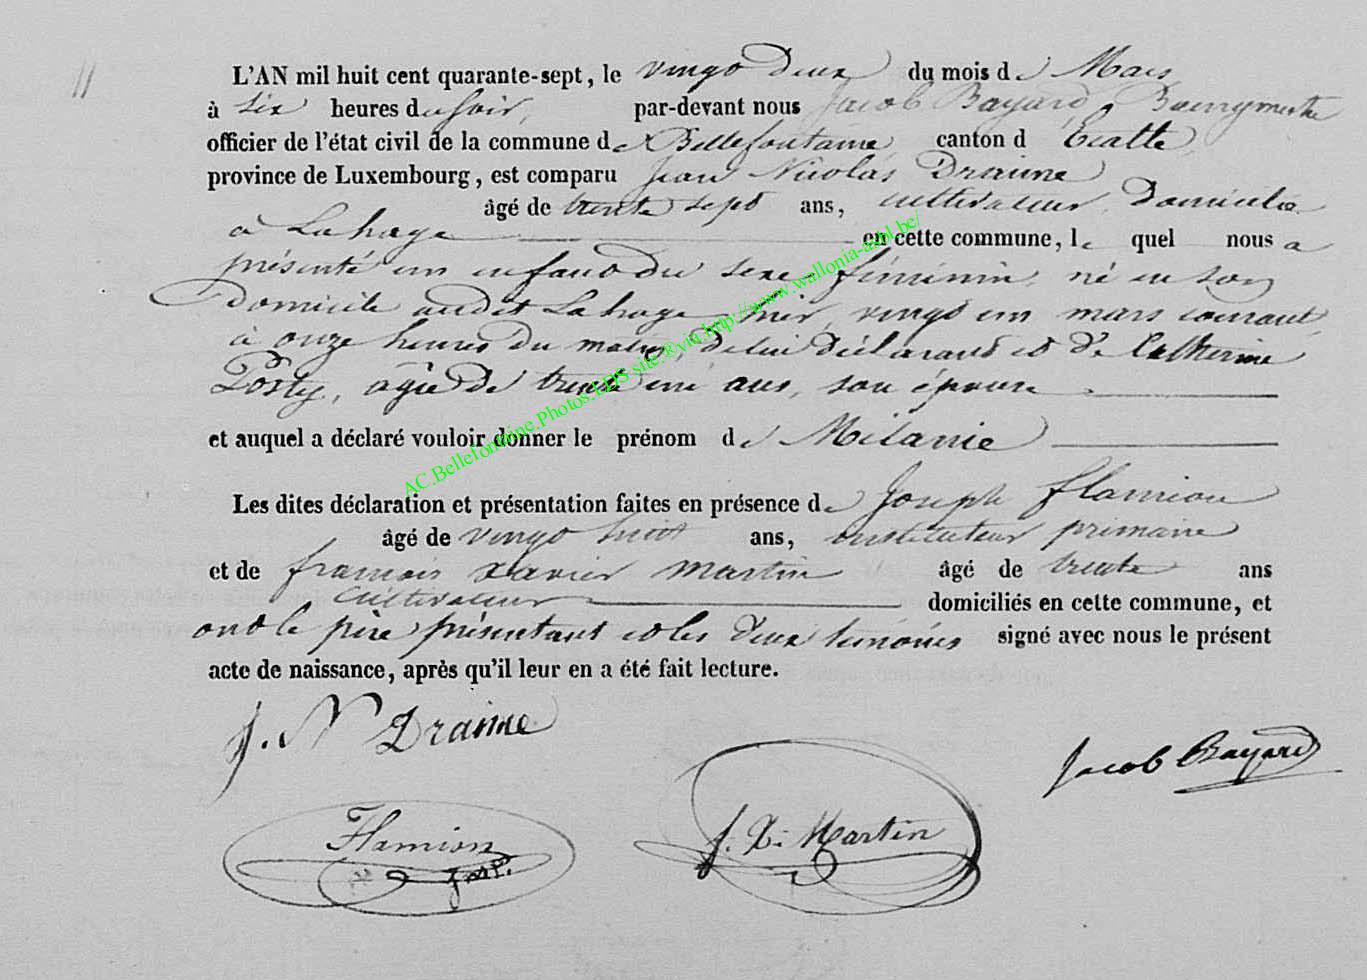 11
L'AN mil huit cent quarante-sept, le vingt deux du mois de Mars
à six heures du soir, par-devant nous Jacob Bayard, Bourgmestre
officier de l'état civil de la commune de Bellefontaine canton d'Etalle
province de Luxembourg, est comparu Jean Nicolas Drainne
âgé de trente sept ans, cultivateur, domicilié
à Lahage en cette commune, le quel nous a
présenté un enfant du sexe féminin, né en son
domicile audit Lahage hier, vingt un mars courant,
à onze heures du matin, de lui déclarant et de Catherine
âgée de trente un ans, son épouse
et auquel a déclaré vouloir donner le prénom de Mélanie
Les dites déclaration et présentation faites en présence de Joseph flamion
âgé de vingt huit ans, instituteur primaire
et de francois xavier martin âgé de trente ans
cultivateur domiciliés en cette commune, et
ont le père présentant et les deux témoins signé avec nous le présent
acte de naissance, après qu'il leur en a été fait lecture.
J. N Drainne
Jacob Bayard
Flamion
Jos.
f. X. Martin
AC.Bellefontaine.Photos.LDS site.®via.http://www.wallonia-asbl.be/